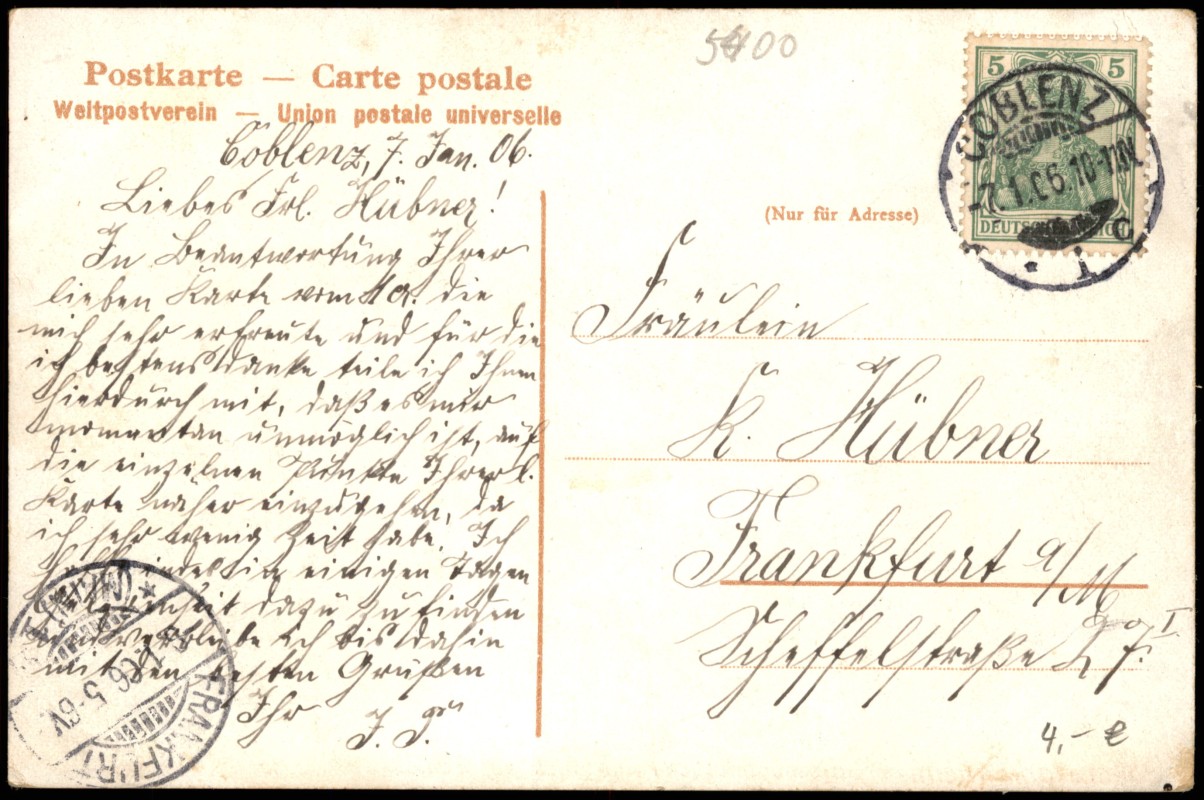 5400
Postkarte — Carte postale
Weltpostverein — Union postale universelle
Coblenz, 7. Jan. 06.
Liebes Frl. Hübner!
In Beantwortung Ihrer
lieben Karte vom die
mich sehr erfreute und für die
ich bestens danke teile ich Ihnen
hierdurch mit, daß es mir
momentan unmöglich ist, auf
die einzelnen Punkte Ihrer l.
Karte näher einzugehen, da
ich sehr wenig Zeit habe. Ich
hoffe indes in einigen Tagen
Gelegenheit dazu zu finden
und verbleibe ich bis dahin
mit den besten Grüßen
Ihr
5 5
DEUTSCHES REICH
COBLENZ
-7.1.06.10-11N.
* 1 c
(Nur für Adresse)
Fräulein
K. Hübner
Frankfurt a/M
Scheffelstraße 27 I
FRANKFURT
(MAIN)
1.06.5-6V.
4,- €